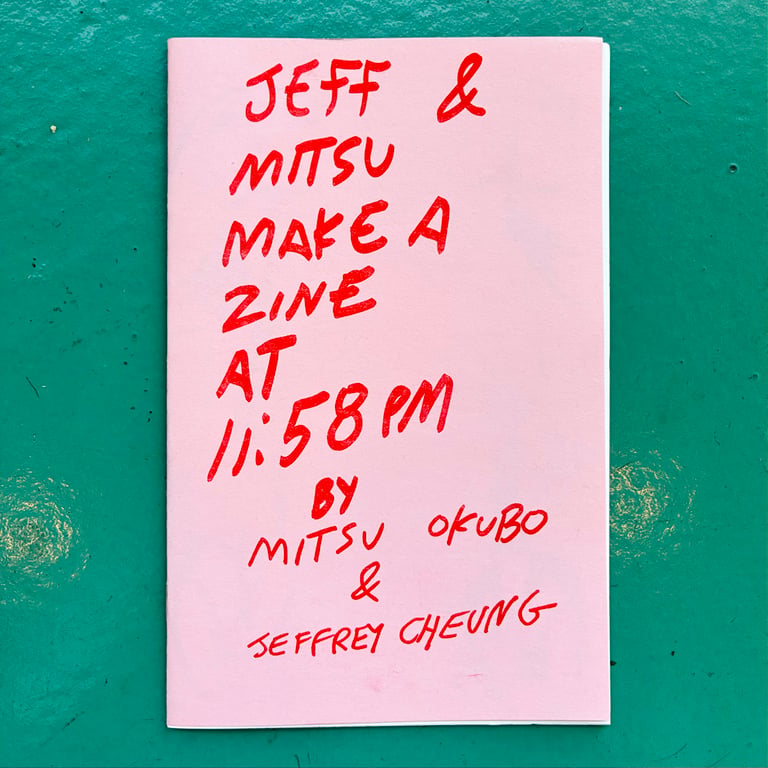 JEFF &
MITSU
MAKE A
ZINE
AT
11:58 PM
BY
MITSU OKUBO
&
JEFFREY CHEUNG